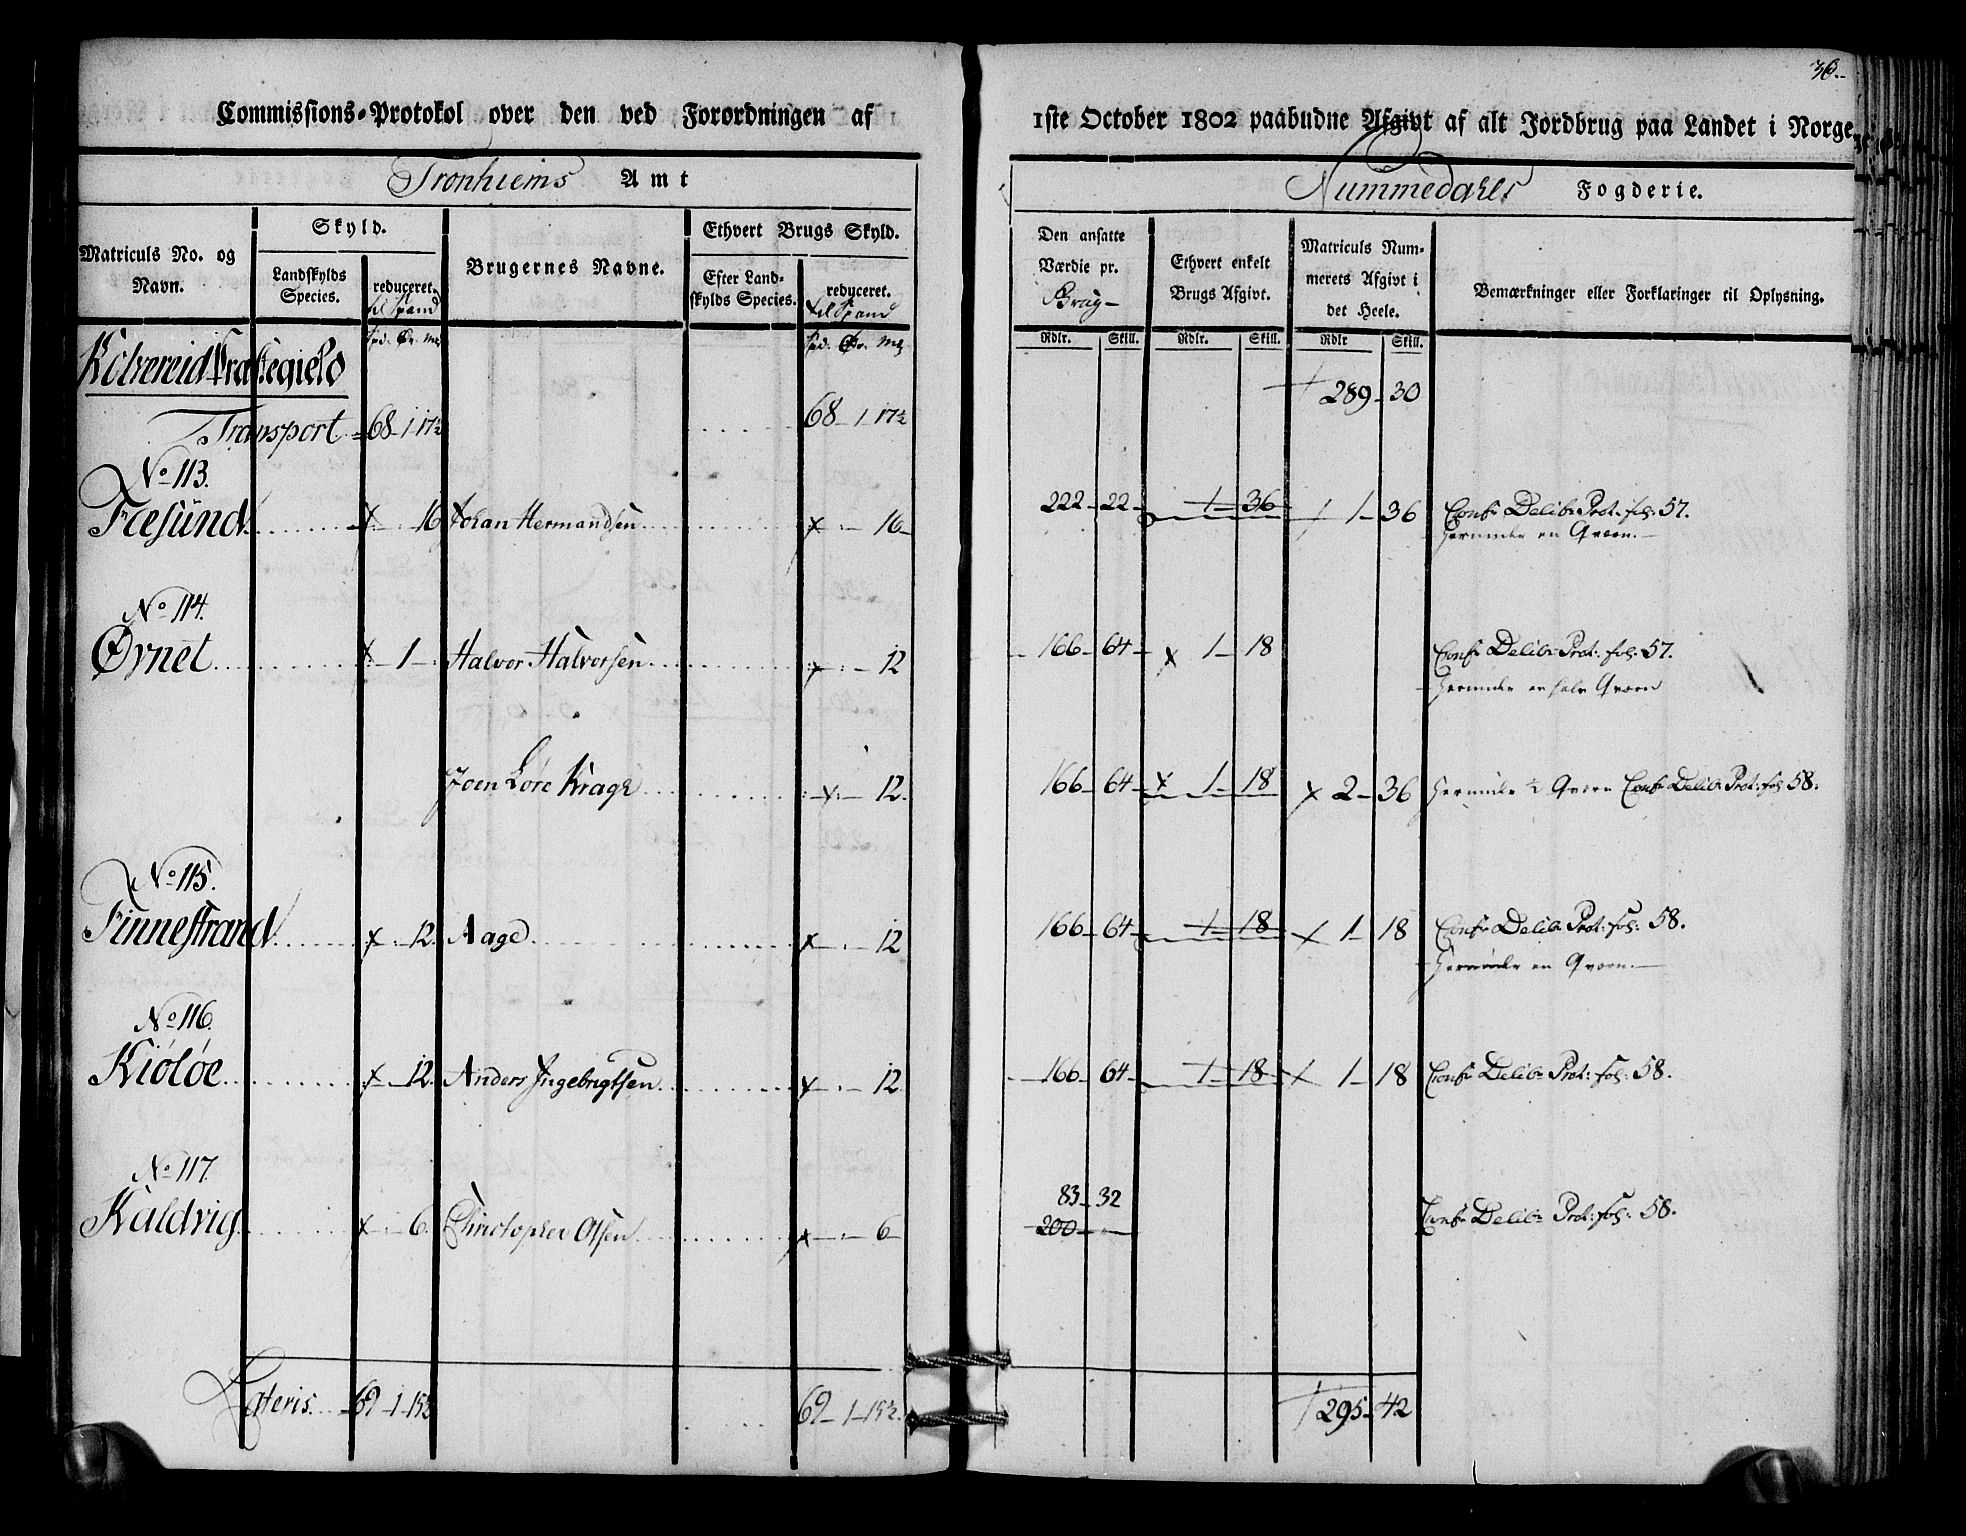 36.
Commissions-Protokol over den ved Forordningen af 1ste October 1802 paabudne Afgivt af alt Jordbrug paa Landet i Norge.
Tronhiems Amt
Nummedahls Fogderie.
Matriculs No. og Navn.
Skyld.
Landskylds Species.
reduceret. til Spand
Brugernes Navne.
Ethvert Brugs Skyld.
Efter Landskylds Species.
reduceret. til Spand
Den ansatte Værdie pr. Brug
Ethvert enkelt Brugs Afgivt.
Matriculs Nummerets Afgivt i det Heele.
Bemærkninger eller Forklaringer til Oplysning.
Spd. Ør. Mk
Spd. Ør. Mk
Rdlr. Skill. Rdlr. Skill. Rdlr Skill.
Kolvereid Præstegield
289 - 30
Transport = 68 1 17½ 68 - 1 17½
No 113.
Flesund x 16 Johan Hermandsen x 16 222 - 22 1 36 1 - 36 Conf: Delib: Prot: fol: 57.
herunder en Qværn.
No 114.
Øvnet x 1 Halvor Halvorsen x 12 166 - 64 x 1 18 Conf: Delib: Prot: fol: 57.
herunder en halv Qværn
Joen Lorc Krage x 12 166 - 64 x 1 - 18 x 2 - 36 herunder ½ Qværn Conf: Delib: Prot: fol 58.
No 115.
Finnestrand x 12 Aage x 12 166 - 64 1 - 18 x 1 - 18 Conf: Delib: Prot: fol: 58.
herunder en Qværn.
No 116.
Kiöløe x 12 Anders Ingebrigtsen x 12 166 - 64 1 - 18 1 - 18 Conf: Delib: Prot: fol: 58.
No 117.
83 - 32
Kaldvig x 6 Christopher Olsen x 6 200 - " Conf: Delib: Prot: fol: 58.
Lateris. 69 - 1 - 15½ 69 - 1 - 15½ 295 - 42